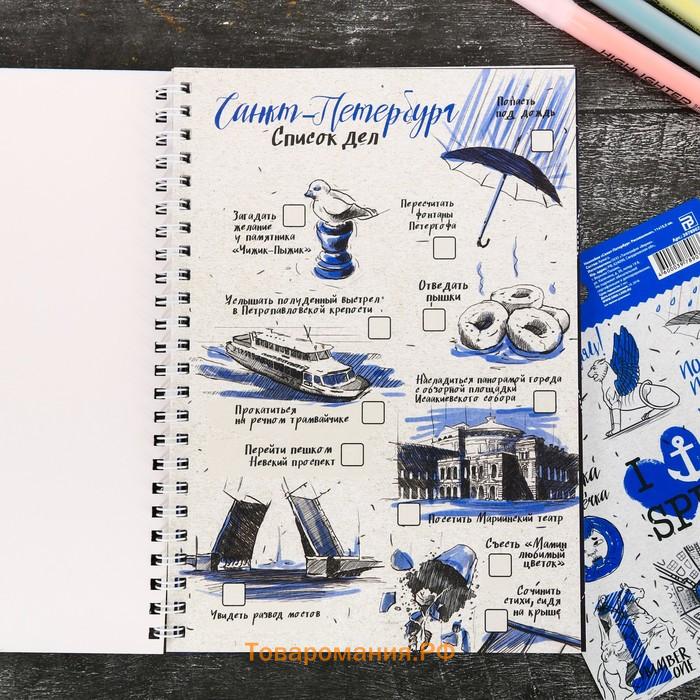 Санкт-Петербург
Список дел
Попасть
под дождь
Загадать
желание
у памятника
«Чижик-Пыжик»
Пересчитать
фонтаны
Петергофа
Услышать полуденный выстрел
в Петропавловской крепости
Отведать
пышки
Насладиться панорамой города
с обзорной площадки
Исаакиевского собора
Прокатиться
на речном трамвайчике
Перейти пешком
Невский проспект
Посетить Мариинский театр
Съесть «Мамин
любимый
цветок»
Увидеть развод мостов
Сочинить
стихи, сидя
на крыше
HIGHLIGHTER
I
SP
NUMBER
ONE
Товаромания.РФ